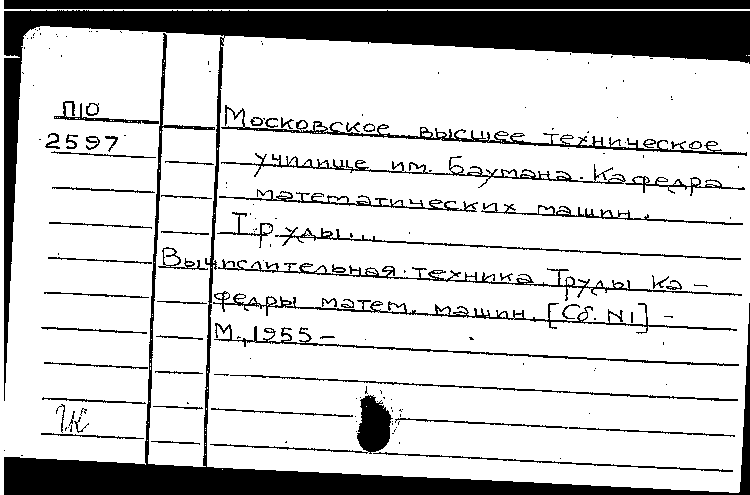 П10
2597
Московское высшее техническое
училище им. Баумана. Кафедра
математических машин.
Труды...
Вычислительная техника. Труды ка-
федры матем. машин. [Сб. N1] -
М., 1955 -